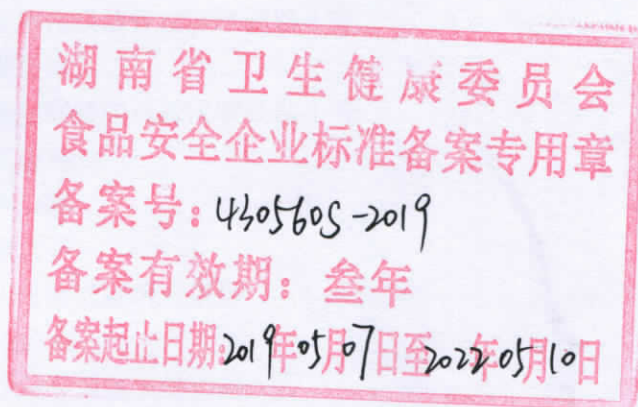 湖南省卫生健康委员会
食品安全企业标准备案专用章
备案号：430560S-2019
备案有效期：叁年
备案起止日期：2019年05月07日至2022年05月10日